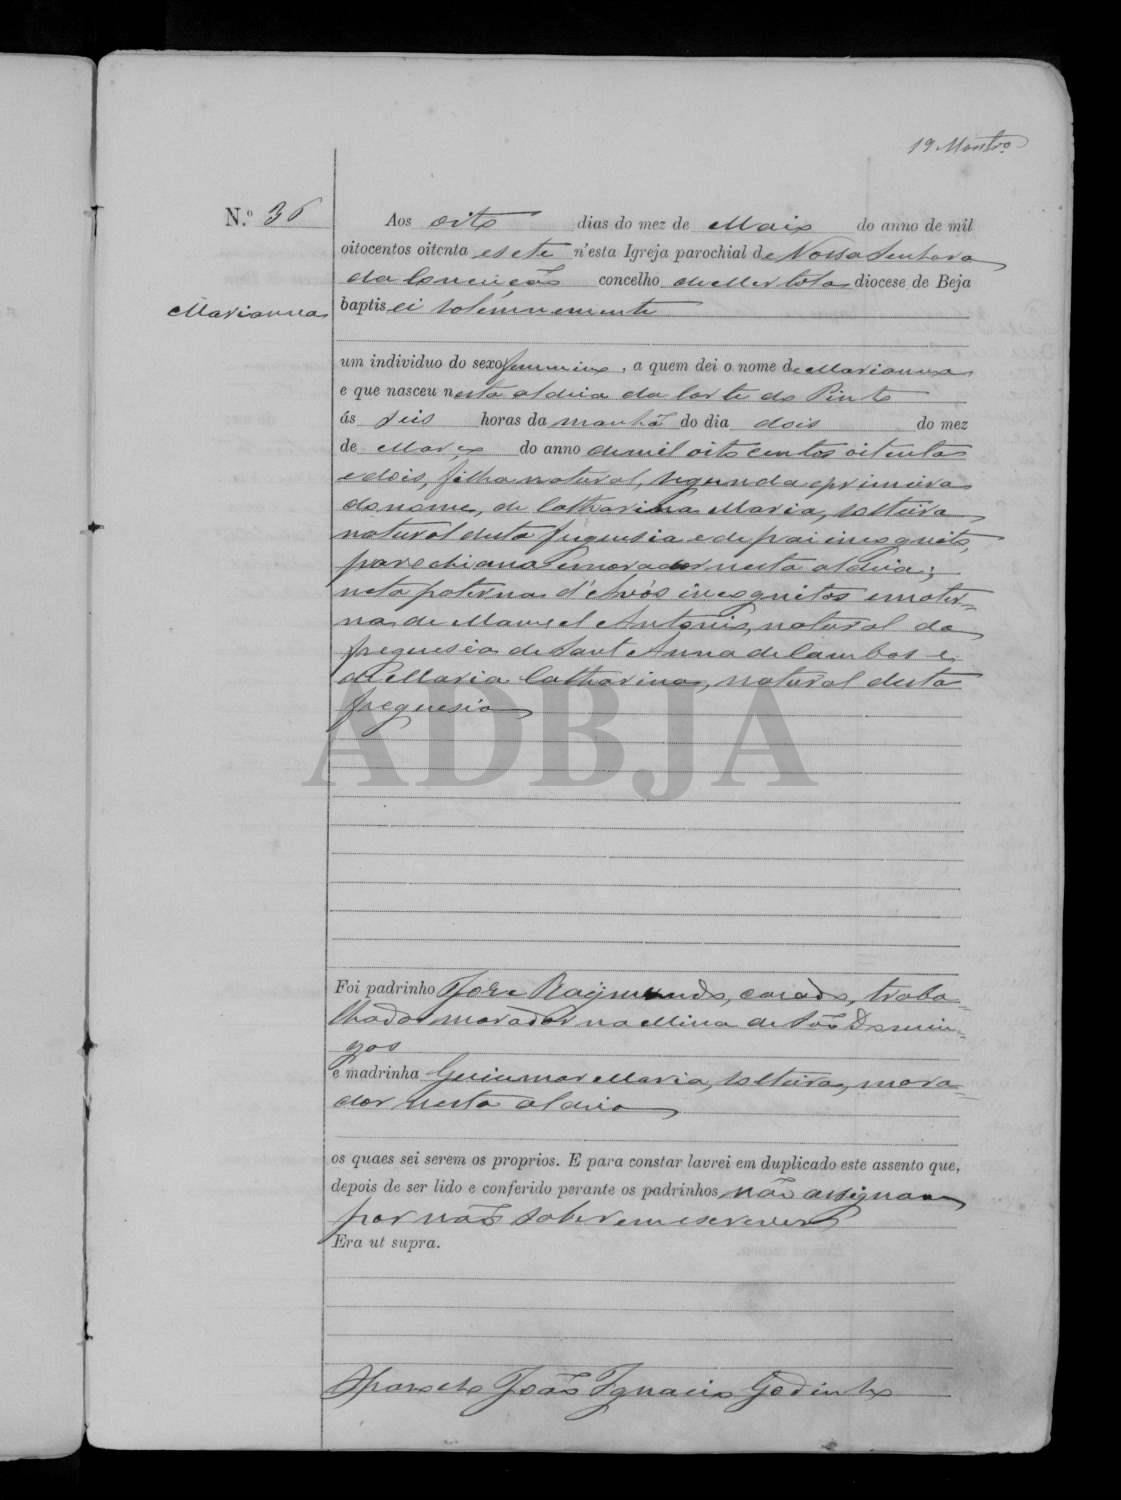 19 Montrº
N.º 36
Aos oito dias do mez de Maio do anno de mil
oitocentos oitenta e sete n'esta Igreja parochial de Nossa Senhora
da Conceição concelho de Mertola diocese de Beja
Marianna
baptisei solemnemente
um individuo do sexo feminino, a quem dei o nome de Marianna
e que nasceu nesta aldeia da Corte do Pinto
ás seis horas da manhã do dia dois do mez
de Março do anno de mil oito centos oitenta
e dois, filha natural, segunda e primeira
do nome, de Catharina Maria, solteira
natural desta freguesia e de pai incognito,
parochiana e morador nesta aldeia;
neta paterna d'Avós incognitos e mater=
na de Manuel Antonio, natural da
freguesia de Sant'Anna de Cambas e
de Maria Catharina, natural desta
freguesia
ADBJA
Foi padrinho José Raymundo, casado, traba=
lhador morador na Mina de São Domin=
gos
e madrinha Guiumar Maria, solteira, mora=
dor nesta aldeia
os quaes sei serem os proprios. E para constar lavrei em duplicado este assento que,
depois de ser lido e conferido perante os padrinhos não assignam
por não saberem escrever
Era ut supra.
O Parocho João Ignacio Godinho